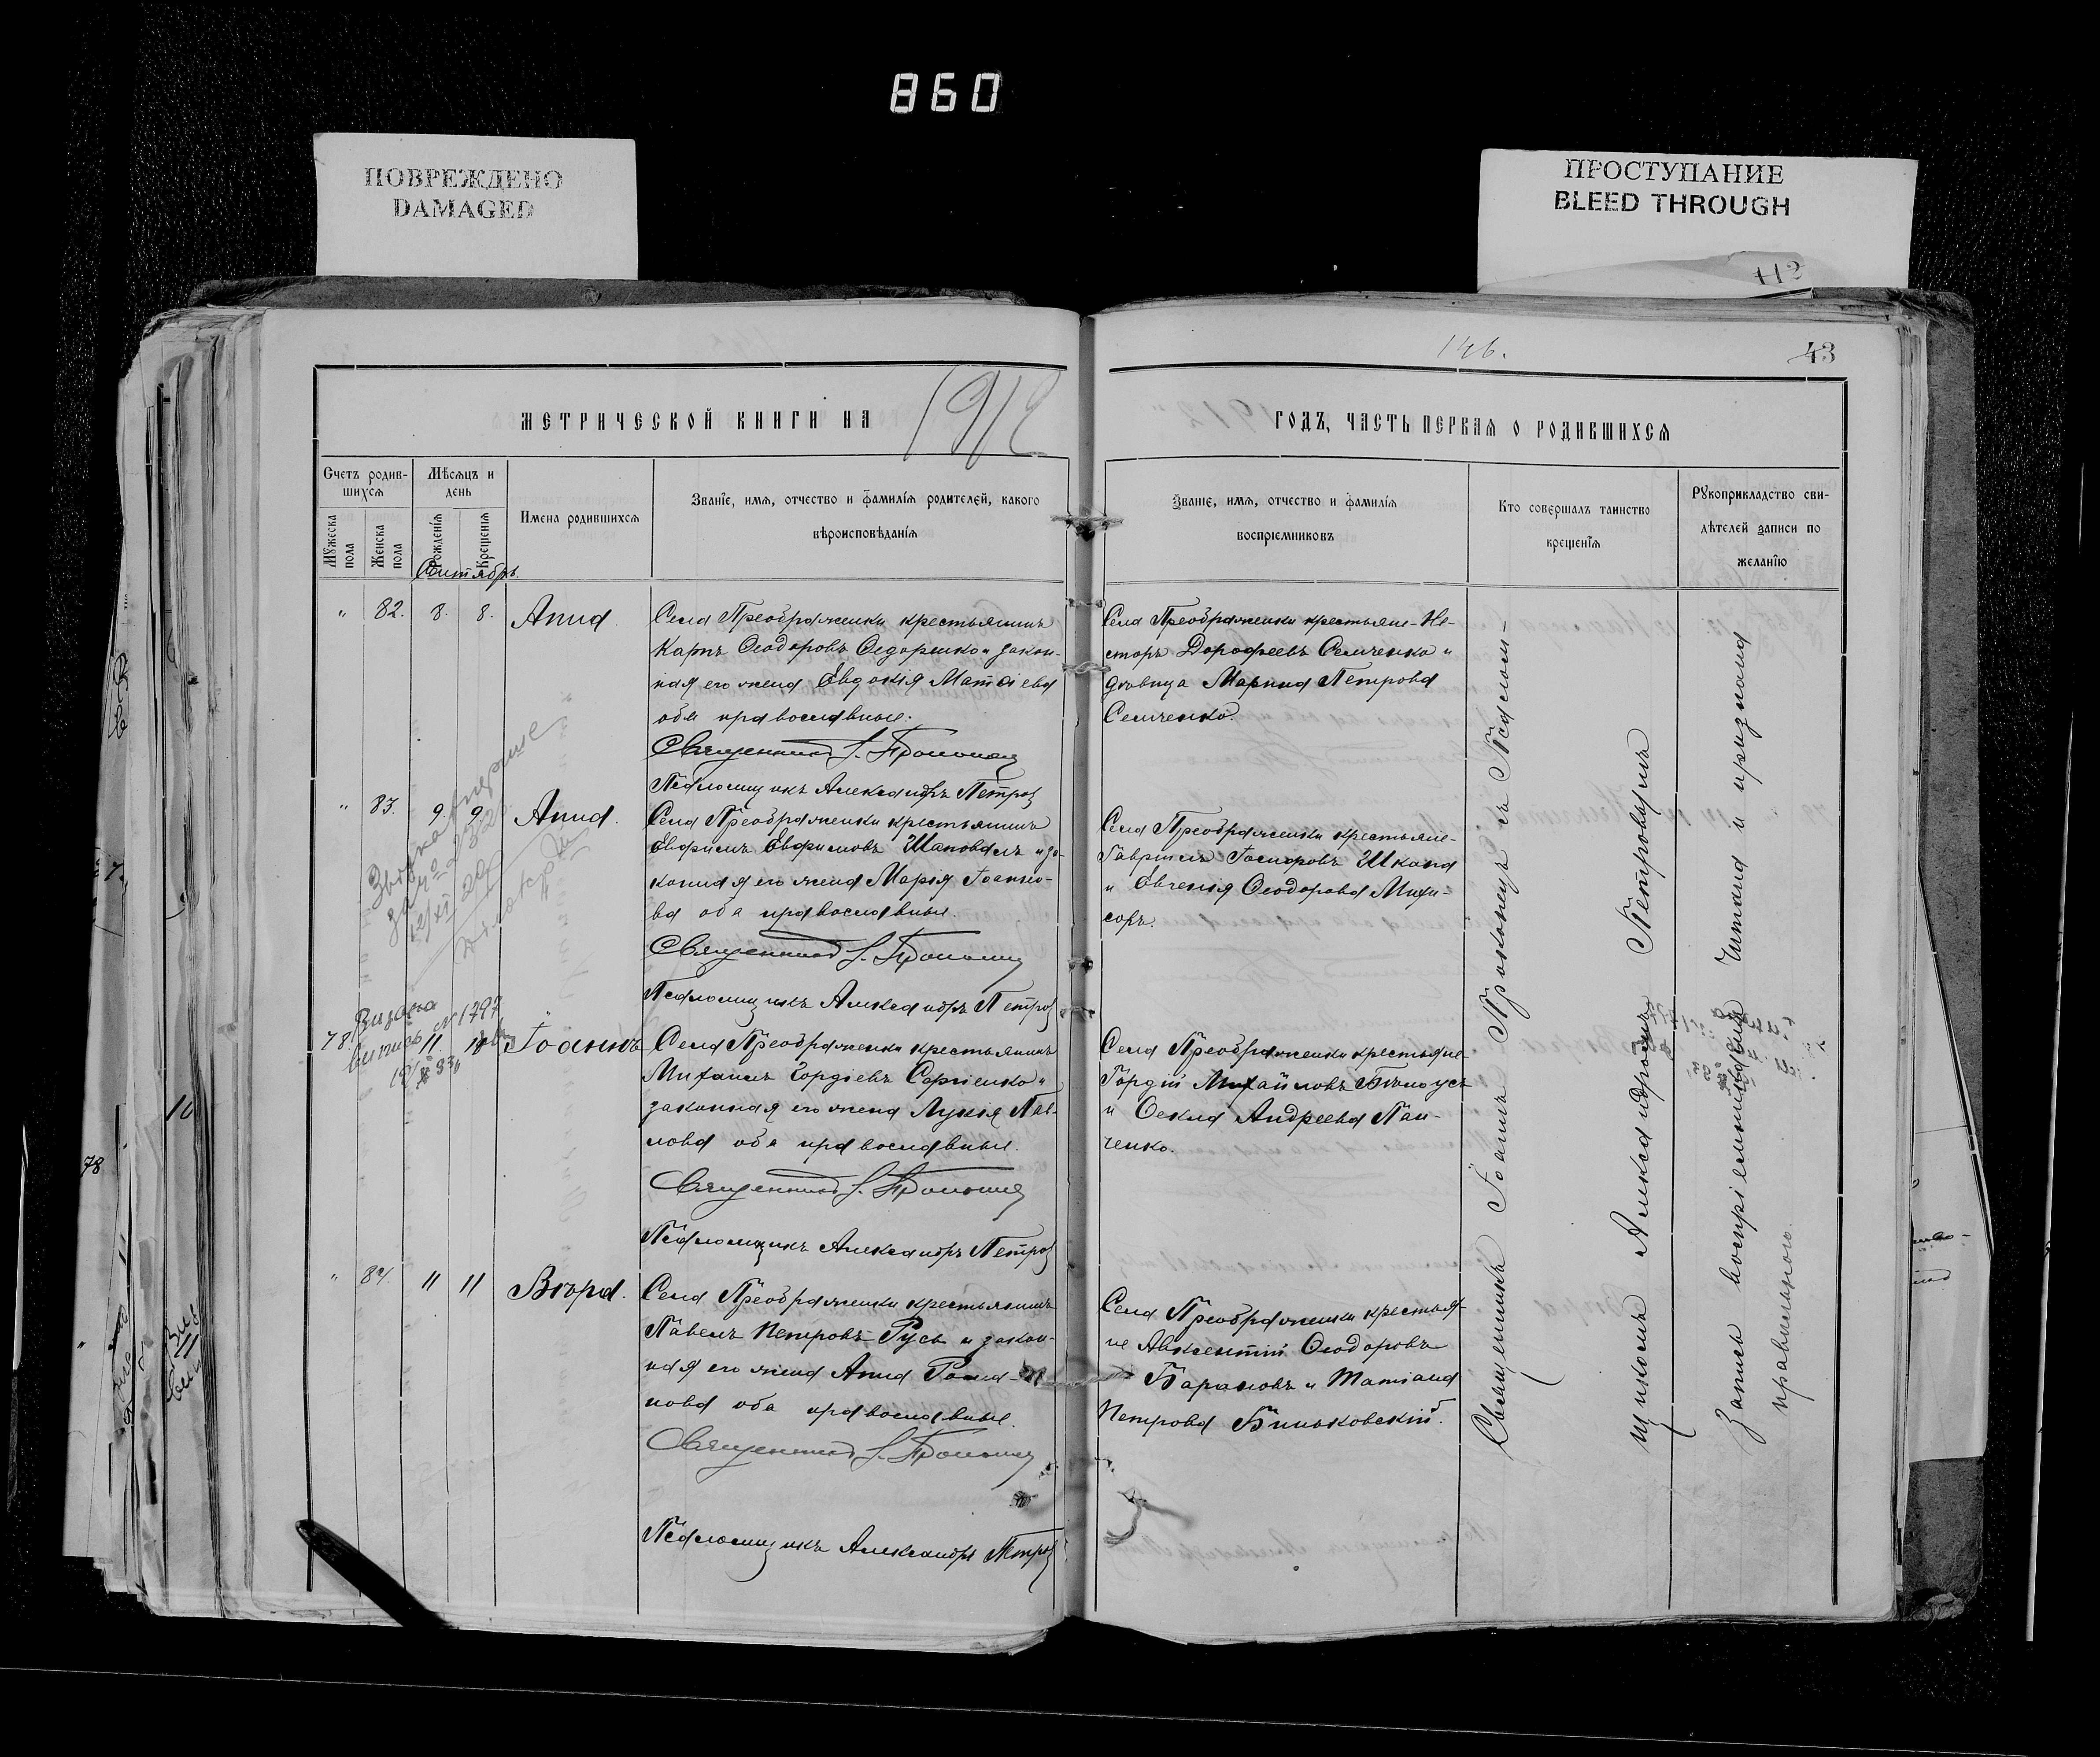 860
ПОВРЕЖДЕНО
DAMAGED
ПРОСТУПАНИЕ
BLEED THROUGH
112
146.
43
МЕТРИЧЕСКОЙ КНИГИ НА 1912
ГОДЪ, ЧАСТЬ ПЕРВАЯ О РОДИВШИХСЯ
Счетъ родив-
шихся
Мужеска пола
Женска пола
Мѣсяцъ и
день
Рожденія
Крещенія
Имена родившихся
Званіе, имя, отчество и фамилія родителей, какого
вѣроисповѣданія
Званіе, имя, отчество и фамилія
воспріемниковъ
Кто совершалъ таинство
крещенія
Рукоприкладство сви-
дѣтелей записи по
желанію
Сентябрь
" 82. 8. 8. Анна.
Села Преображенки крестьянинъ
Карпъ Ѳеодоровъ Ѳедоренко и закон-
ная его жена Евдокія Матѳіева
оба православные.
Священникъ І. Проконец
Псаломщикъ Александръ Петров
Села Преображенки крестьяне - Не-
сторъ Дорофеевъ Семченко и
дѣвица Марина Петрова
Семченко.
" 83. 9. 9. Анна.
Села Преображенки крестьянинъ
Евфимъ Евфимовъ Шаповалъ и за-
конная его жена Марія Іоанно-
ва оба православные.
Священникъ І. Проконец
Псаломщикъ Александръ Петров
Села Преображенки крестьяне -
Гавріилъ Шкода
и Евгенія Ѳеодорова
78. 11 Іоаннъ
Села Преображенки крестьянинъ
Михаилъ Гордіевъ Сергіенко и
законная его жена Лукія Пав-
лова оба православные.
Священникъ І. Проконец
Псаломщикъ Александръ Петров
Села Преображенки крестьяне -
Гордій Михайловъ Бѣлоусъ
и Ѳекла Андреева Пан-
ченко.
" 84. 11 11 Вѣра.
Села Преображенки крестьянинъ
Павелъ Петровъ Русъ и закон-
ная его жена Анна Рома-
нова оба православные.
Священникъ І. Проконец
Псаломщикъ Александръ Петров
Села Преображенки крестья-
не Авксентій Ѳеодоровъ
Барановъ и Татіана
Петрова Биньковскій.
Священникъ Іоаннъ Проконецъ съ Псалом-
щикомъ Александромъ Петровичемъ
Запись воспріемниковъ читана и признана
правильною.
Видана
випись № 1797